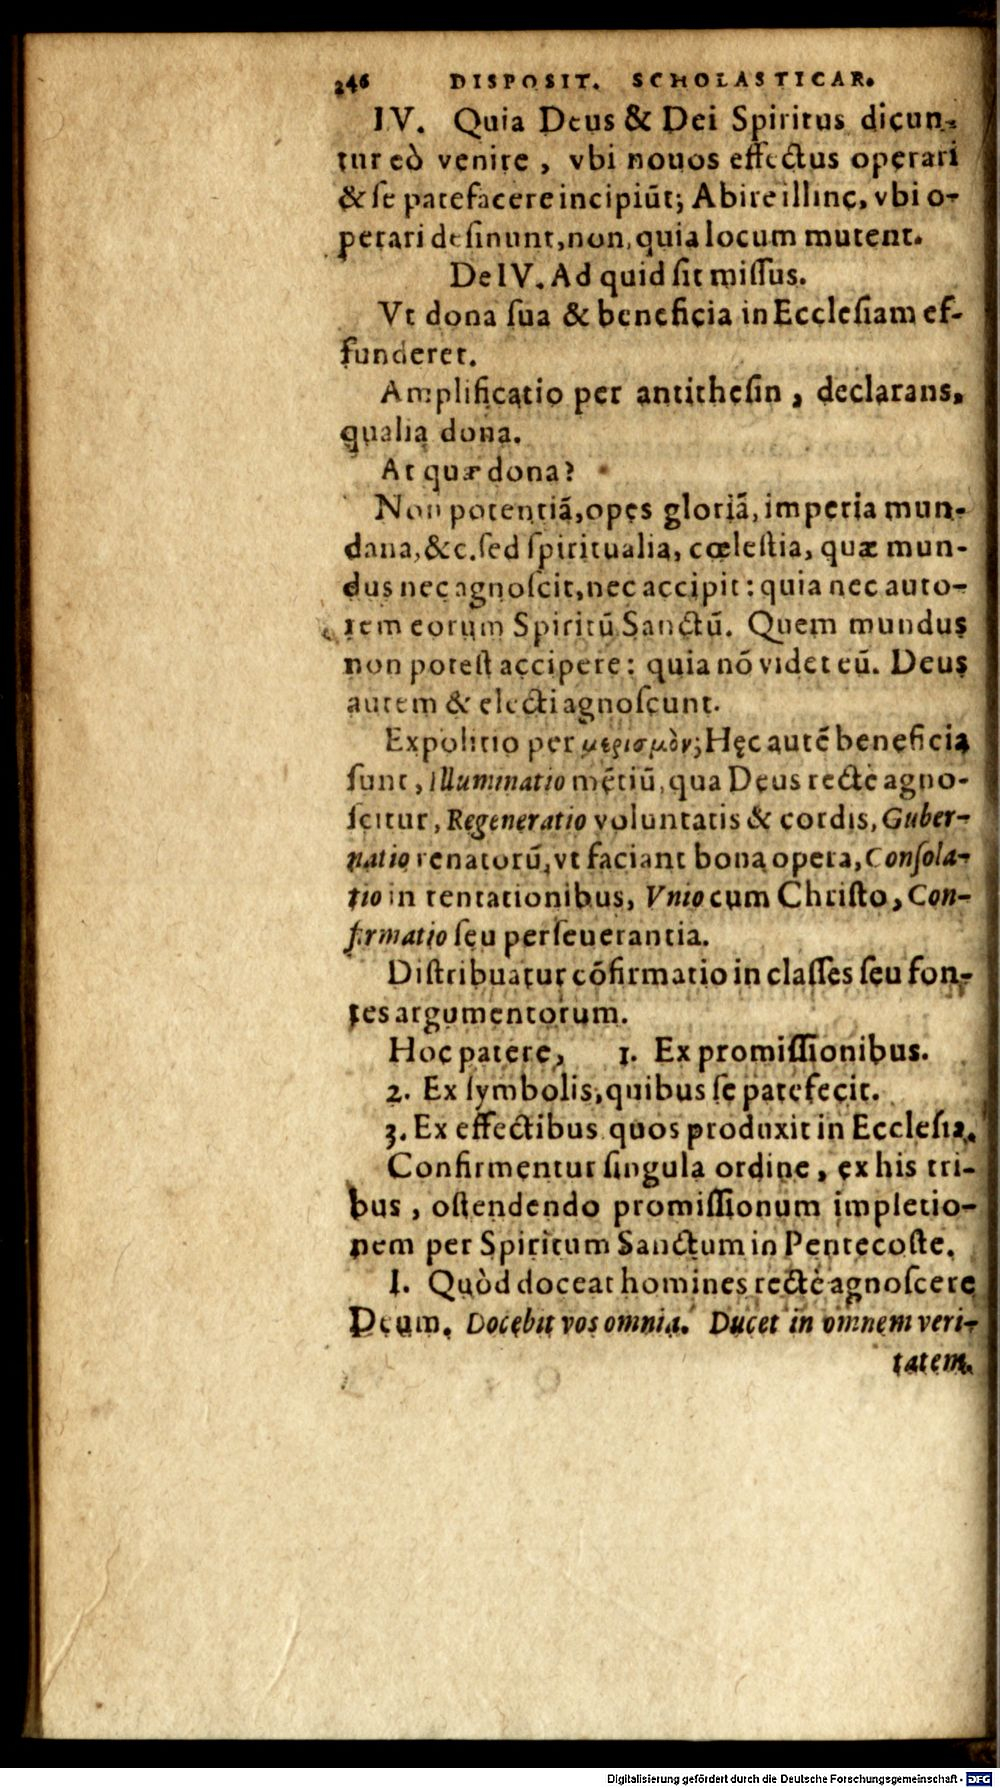 246 DISPOSIT. SCHOLASTICAR.
IV. Quia Deus & Dei Spiritus dicun-
tur eò venire, vbi nouos effectus operari
& ſe patefacere incipiũt; Abire illinc, vbi o-
perari deſinunt, non, quia locum mutent.
De IV. Ad quid ſit miſſus.
Vt dona ſua & beneficia in Eccleſiam ef-
funderet.
Amplificatio per antitheſin, declarans,
qualia dona.
At quæ dona?
Non potentiã, opes gloriã, imperia mun-
dana, &c. ſed ſpiritualia, cœleſtia, quæ mun-
dus nec agnoſcit, nec accipit: quia nec auto-
rem eorum Spiritũ Sanctũ. Quem mundus
non poteſt accipere: quia nõ videt eũ. Deus
autem & electi agnoſcunt.
Expolitio per μερισμὸν; Hęc autẽ beneficia
ſunt, Illuminatio mẽtiũ, qua Deus rectè agno-
ſcitur, Regeneratio voluntatis & cordis, Guber-
natio renatorũ, vt faciant bona opera, Conſola-
tio in tentationibus, Vnio cum Chriſto, Con-
firmatio ſeu perſeuerantia.
Diſtribuatur cõfirmatio in claſſes ſeu fon-
tes argumentorum.
Hoc patere, 1. Ex promiſſionibus.
2. Ex ſymbolis, quibus ſe patefecit.
3. Ex effectibus quos produxit in Eccleſia.
Confirmentur ſingula ordine, ex his tri-
bus, oſtendendo promiſſionum impletio-
nem per Spiritum Sanctum in Pentecoſte.
I. Quòd doceat homines rectè agnoſcere
Deum. Docebit vos omnia. Ducet in omnem veri-
tatem.
Digitalisierung gefördert durch die Deutsche Forschungsgemeinschaft - DFG